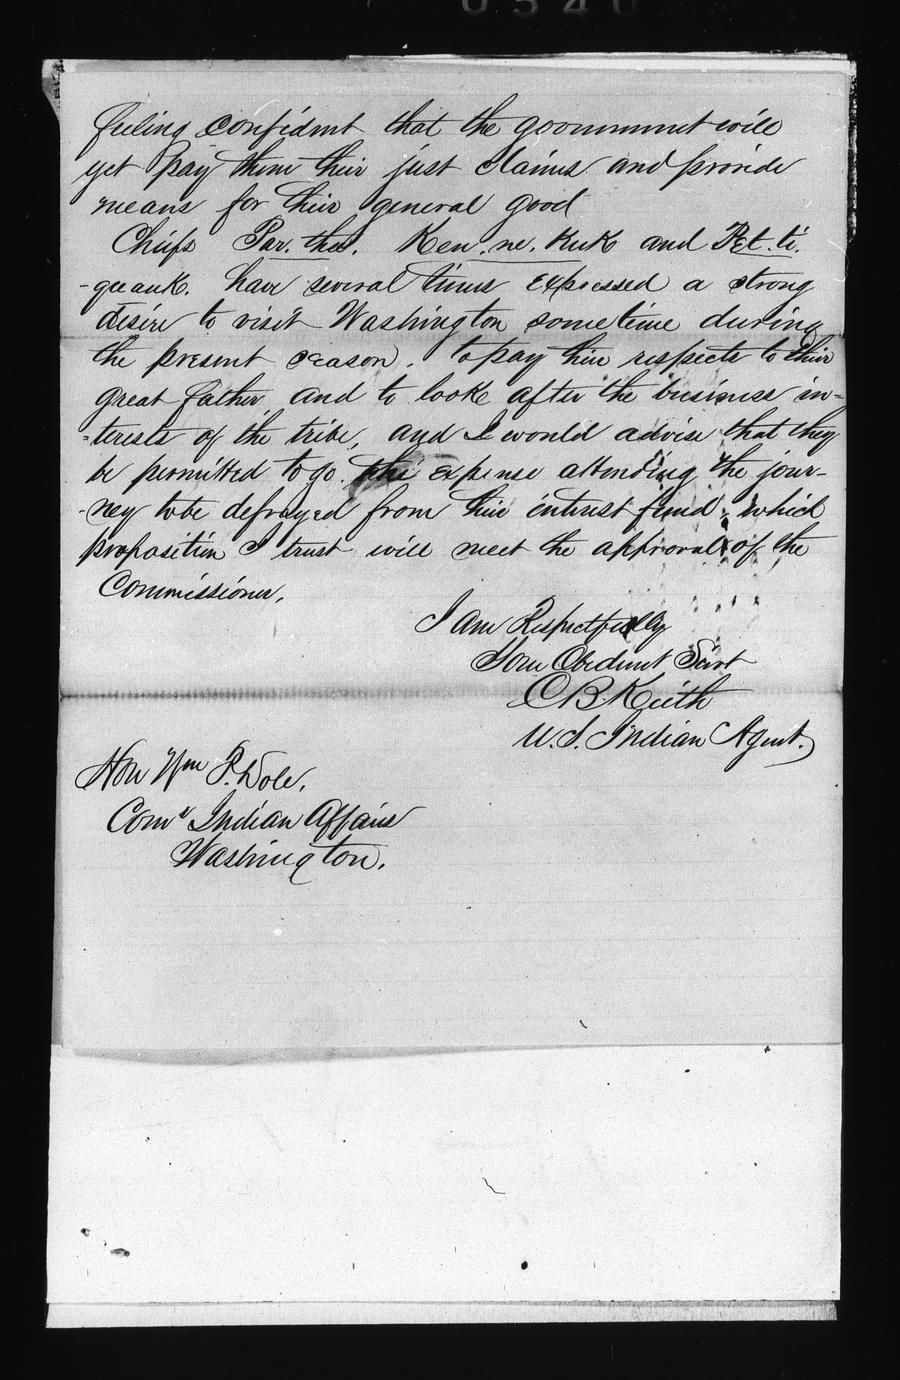 feeling confident that the government will
yet pay them their just claims and provide
means for their general good
Chiefs Par.the. Ken.ne.Kuk and Pet.ti.
-quauk. have several times expressed a strong
desire to visit Washington sometime during
the present season. to pay their respects to their
great father and to look after the business in-
-terests of the tribe, and I would advise that they
be permitted to go. the expense attending the jour-
-ney to be defrayed from their interest fund, which
proposition I trust will meet the approval of the
Commissioner.
I am Respectfully
Your Obedient Servt
C B Keith
U.S. Indian Agent.
Hon Wm P. Dole,
Comr Indian Affairs
Washington.